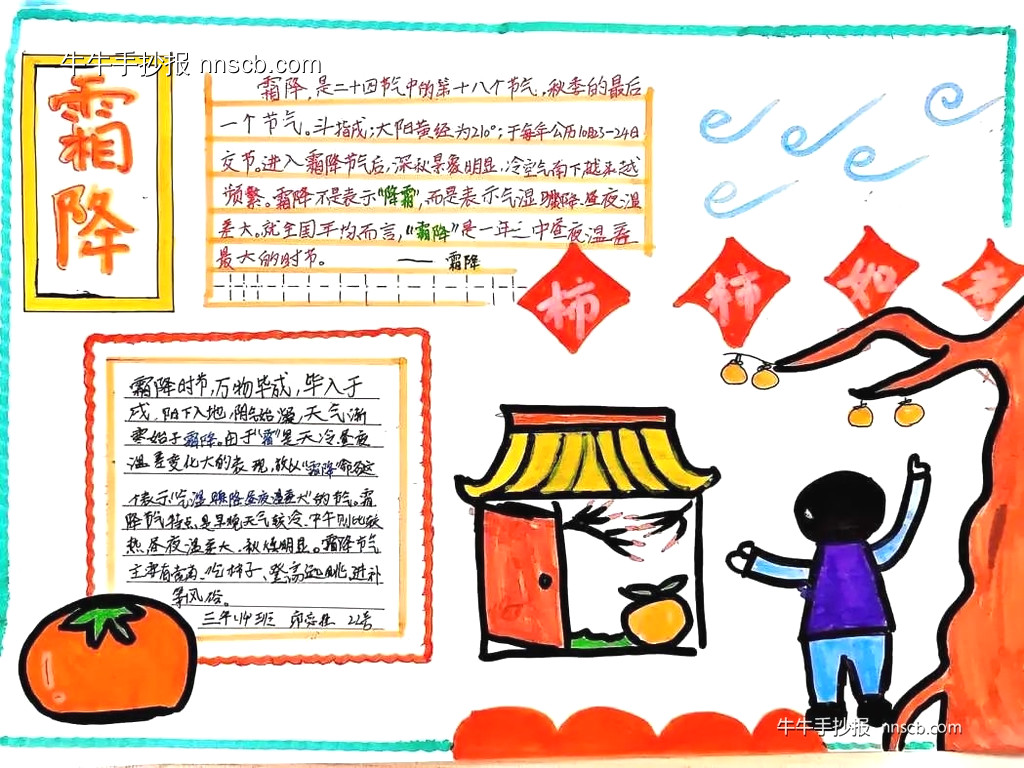 牛牛手抄报 nnscb.com
霜降
霜降,是二十四节气中的第十八个节气,秋季的最后
一个节气。斗指戌;太阳黄经为210°;于每年公历10月23-24日
交节。进入霜降节气后,深秋景象明显,冷空气南下越来越
频繁。霜降不是表示“降霜”,而是表示气温骤降、昼夜温
差大。就全国平均而言,“霜降”是一年之中昼夜温差
最大的时节。 —— 霜降
柿柿如意
霜降时节,万物毕成,毕入于
戌,阳下入地,阴气始凝,天气渐
寒始于霜降。由于“霜”是天冷、昼夜
温差变化大的表现,故以“霜降”命名这
个表示“气温骤降、昼夜温差大”的节气。霜
降节气特点是早晚天气较冷、中午则比较
热,昼夜温差大,秋燥明显。霜降节气
主要有赏菊、吃柿子、登高远眺、进补
等风俗。
三年 班 22号
牛牛手抄报 nnscb.com